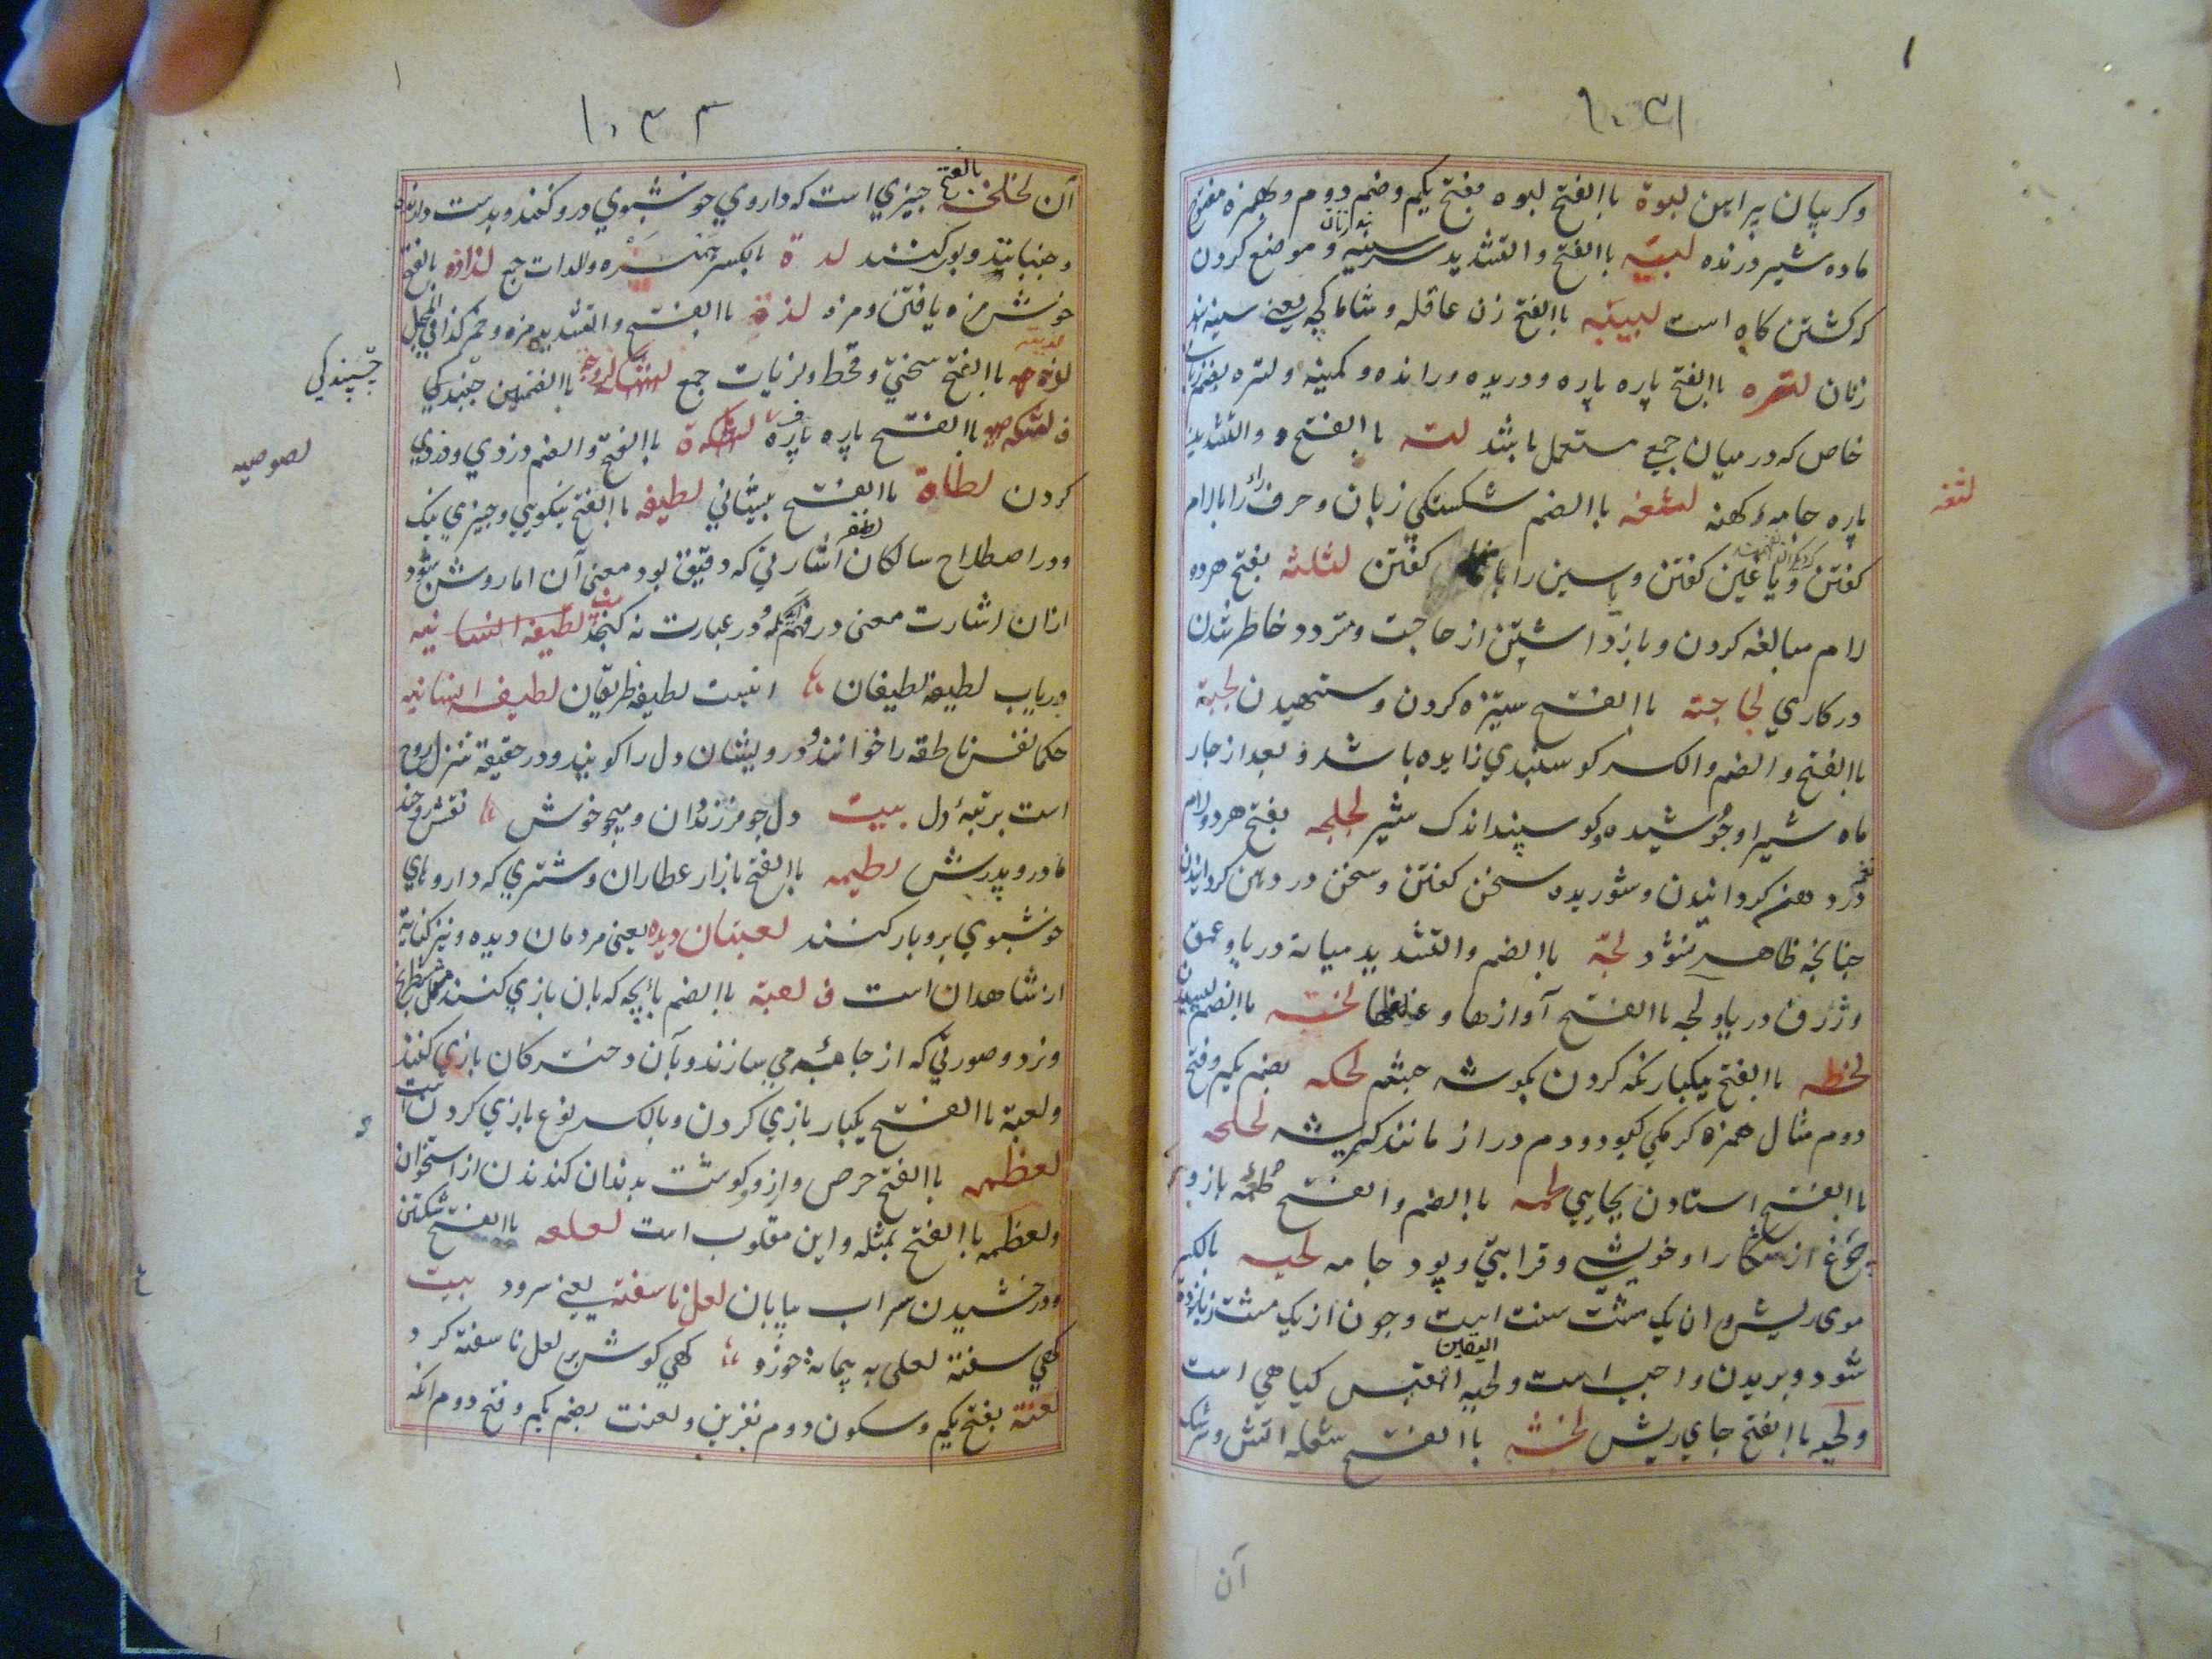 ۱۰۳۱
وکریبان پیراهن لبوة باالفتح لبوه بفتح یکم وضم دوم وبهمزه مفتوح
ماده شیر درنده لبیه باالفتح والتشدید سر سینه و موضع کردن
که کشتن کاه است لبیبه باالفتح زن عاقله و شاماکچه یعنی سینه بند
زنان لتره باالفتح پاره پاره ودریده ورانده وکمینه ولتره بضم زبان
خاص که درمیان جمعی مستعمل باشد لته باالفتح والتشدید
پاره جامه کهنه لثغه باالضم شکستکی زبان وحرف را بالام
کفتن ویا غین کفتن وسین را با کفتن لثلثه بفتح هردو
لام مبالغه کردن وبازداشتن از حاجت ومتردد خاطر شدن
درکاری لجاجته باالفتح ستیزه کردن وستهیدن لجبة
باالفتح والضم والکسر کوسپندی زاییده باشد و بعد از چار
ماه شیر او جوشیده وکوسپند اندک شیر لجلجه بفتح هردو لام
درد دهن کردانیدن وشوریده سخن کفتن وسخن در دهن کردانیدن
چنانچه ظاهر نشود لجّه باالضم والتشدید میانه دریا وعمق
وژرف دریا ولجه باالفتح آوازها و لخته باالضم
لحظه باالفتح یکبار نکه کردن بکوشه چشم لحکه بضم یکم وفتح
دوم مثال همزه کرمکی کبود ودم دراز مانند لحلحه
باالفتح استادن بجایی لحمه باالضم والفتح طعمه باز و
چرغ از شکار او خویشی وقرابتی وپود جامه لحیه بالکسر
موی ریش وان یک مشت سنت است وچون از یک مشت زیاده
شود وبریدن واجب است ولحیة التیس کیاهی است
ولحیه باالفتح جای ریش لخشه باالفتح شعله اتش وشرک
لثغه
آن
۱۰۳۲
آن لخلخه بالفتح چیزی است که داروی خوشبوی درو کنند وبدست دارند
وجنبانند وبوی کنند لدة بالکسر ولدات جمع لذاذه بالفتح
خوش مزه یافتن ومزه لذة باالفتح والتشدید مزه وخمر کذا فی المجمل
باالفتح سختی وقحط ولزبات جمع باالضمتین چبندکی
ف باالفتح پاره پاره باالفتح والضم دزدی ودزدی
کردن لطاة باالفتح پیشانی لطیفه باالفتح نیکویی وچیزی نیک
ودراصطلاح سالکان اشارتی که دقیق بود معنی آن اما روشن شود
ازان اشارت معنی درفهم که درعبارت نه کنجد لطیفه انسانیه
دریاب لطیفه لطیفان انیست لطیفه ظریفان لطیفه انسانیه
حکما نفس ناطقه را خوانند ودرویشان دل را کویند ودرحقیقة تنزل روح
است برتبۀ دل بیت دل چو فرزندان ومیچو خوش نفس وخد
مادر وپدرش لطیمه باالفتح بازار عطاران وشتری که داروهای
خوشبوی برو بار کنند لعبتان دیده یعنی مردمان دیده ونیز کنایة
ازشاهدان است ف لعبة باالضم بازیچه که بان بازی کنند مثل شطرنج
ونرد وصورتی که از جامه می سازند وبآن دخترکان بازی کنند
ولعبة باالفتح یکبار بازی کردن وبالکسر نوع بازی کردن است
لعظمه باالفتح حرص وآز وکوشت بدندان کندن از استخوان
ولعظمه باالفتح بمثله واین مقلوب است لعلعه باالفتح شکستن
ودرخشیدن سراب بیابان لعل ناسفته یعنی سرود بیت
کهی سفته لعلی به پیمانه خورد کهی کوش بر لعل ناسفته کرد
لعنة بفتح یکم وسکون دوم نفرین ولعنت بضم یکم وفتح دوم انکه
چسپندکی
لصوصیه